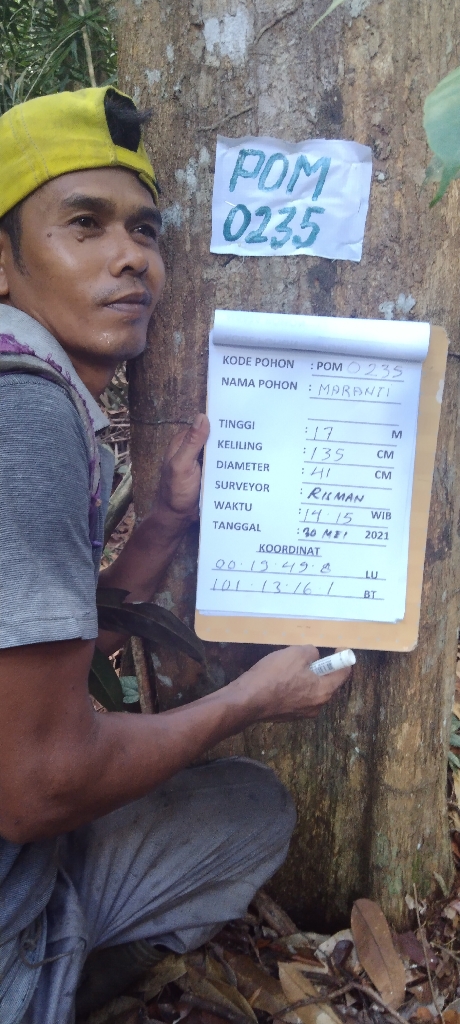 POM
0235
KODE POHON : POM 0235
NAMA POHON : MARANTI
TINGGI : 17 M
KELILING : 135 CM
DIAMETER : 41 CM
SURVEYOR : RISMAN
WAKTU : 14.15 WIB
TANGGAL : 30 MEI 2021
KOORDINAT
00.19.49.8 LU
101.13.16 1 BT